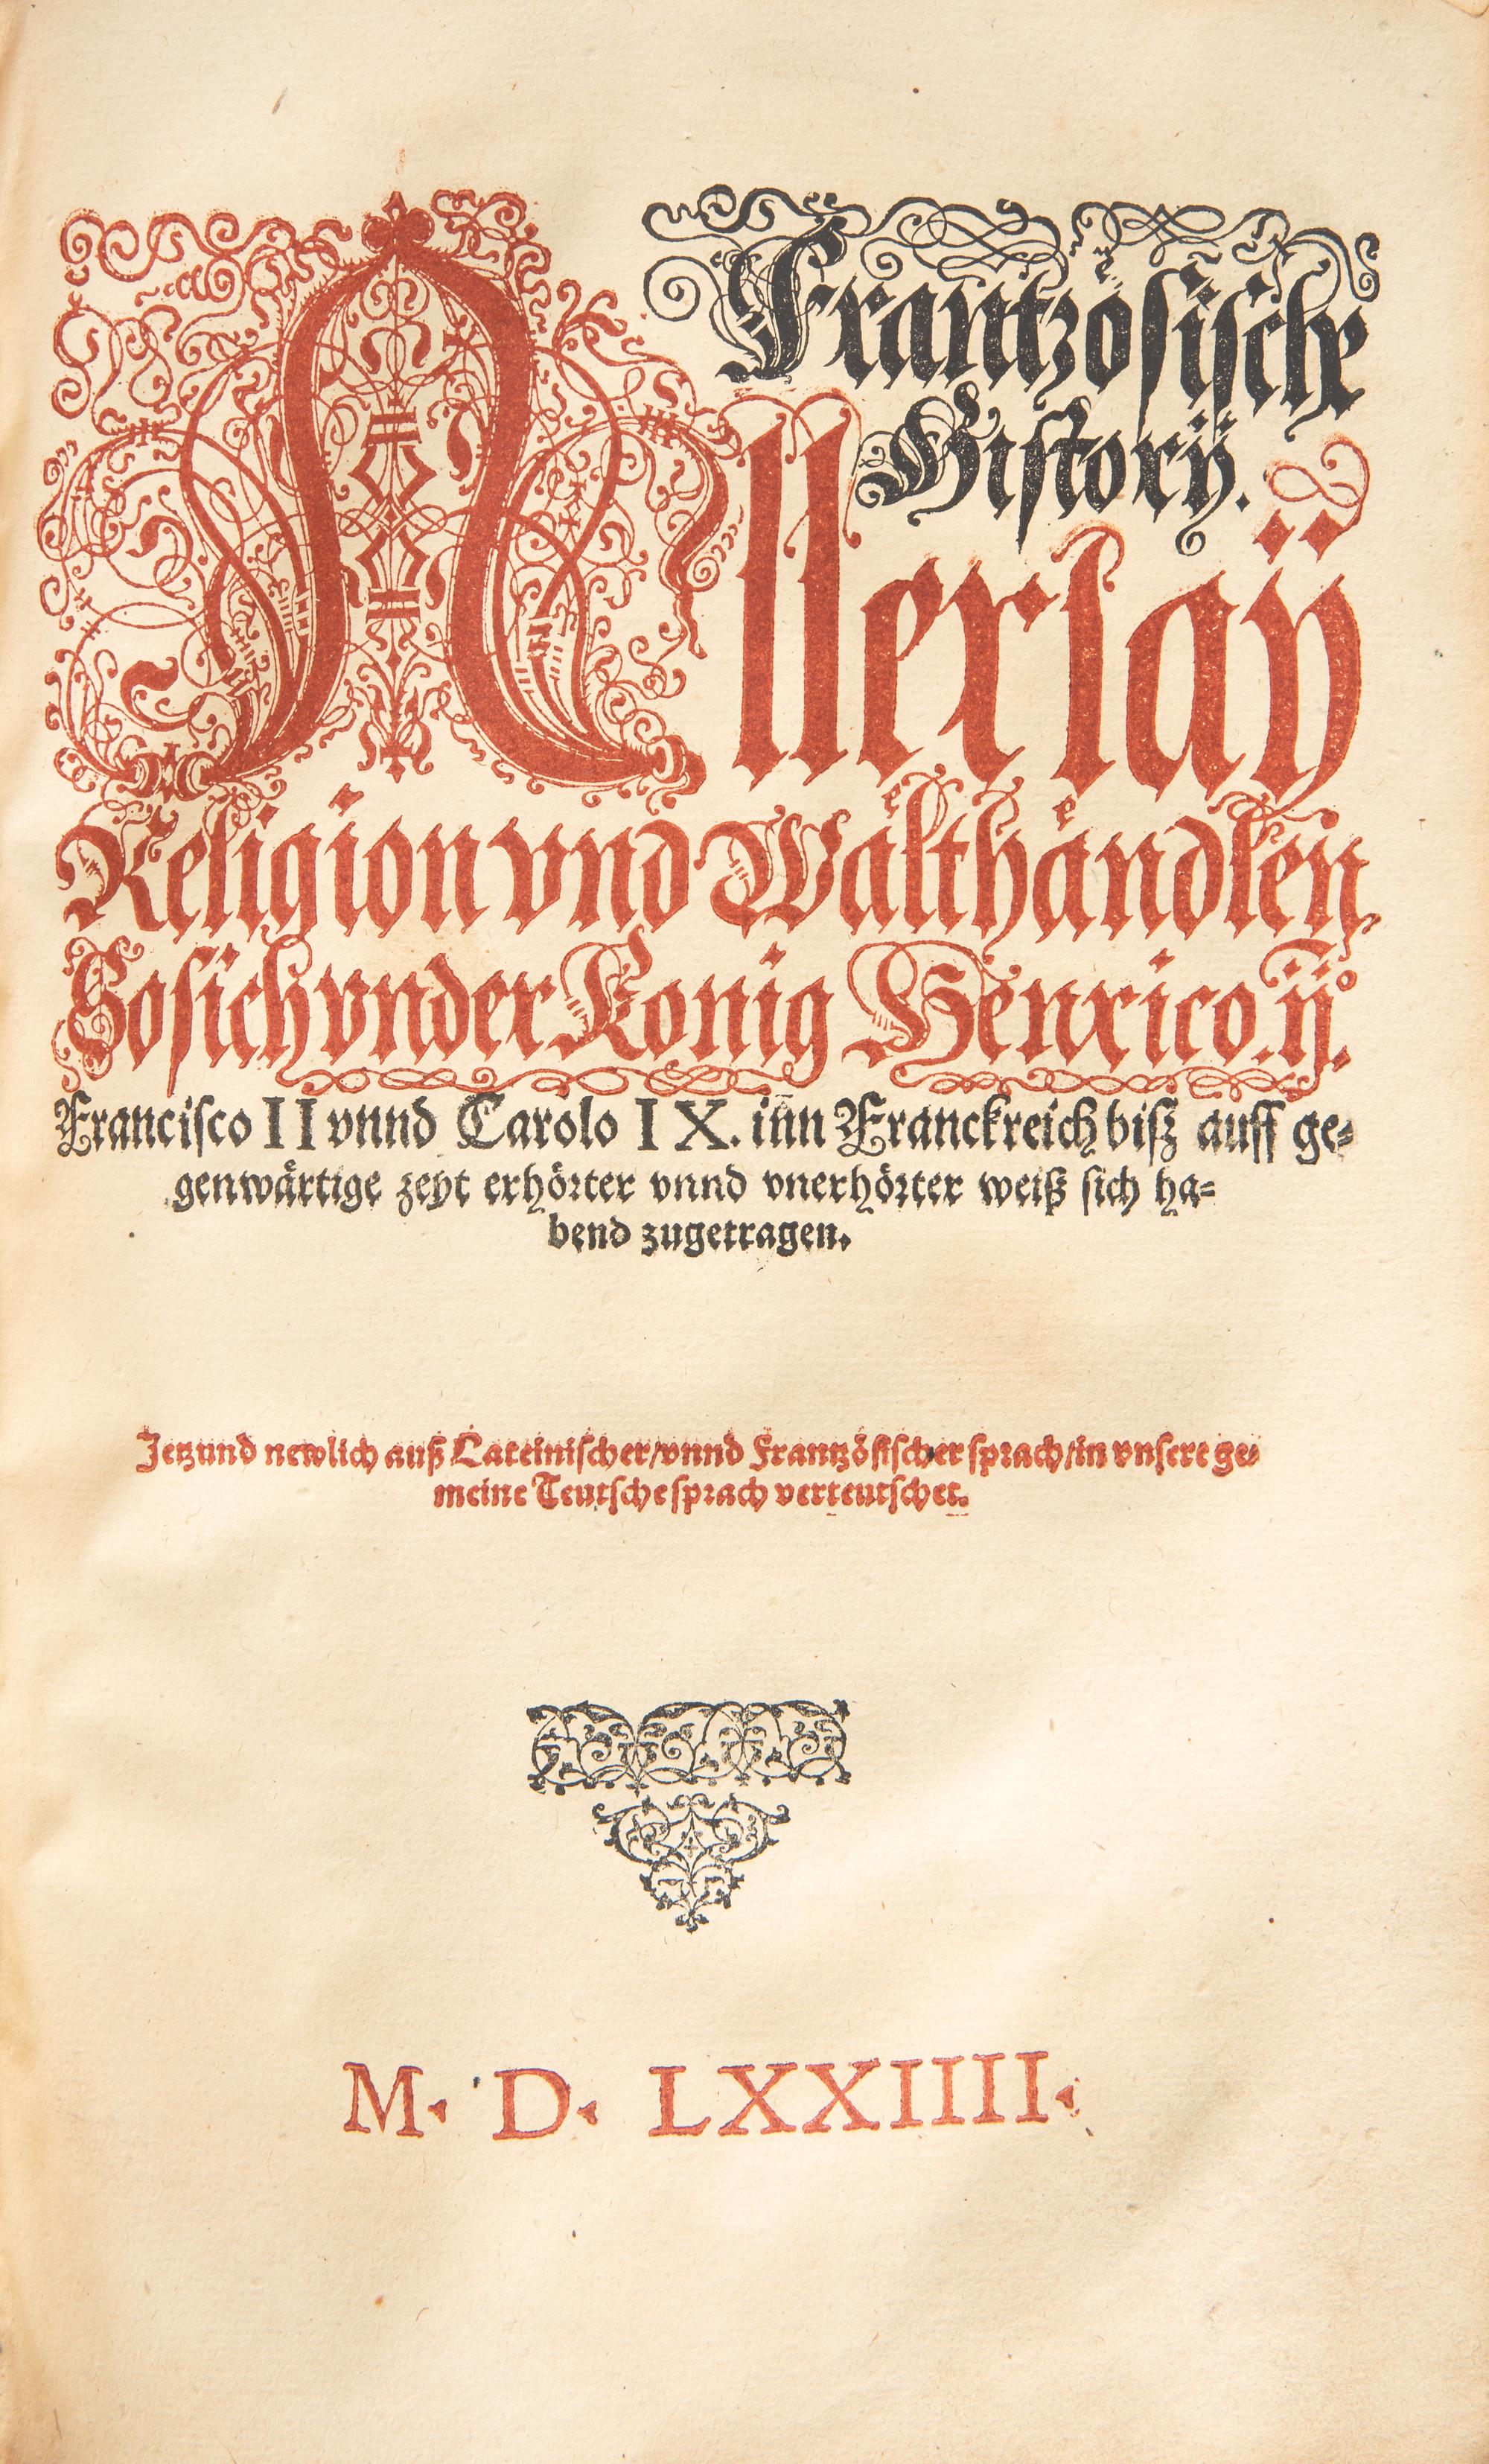 Frantzösische
History.
Allerlaÿ
Religion vnd Wälthändlen,
So sich vnder König Henrico .ij°.
Francisco II vnnd Carolo IX. inn Franckreich biß auff ge-
genwärtige zeyt erhörter vnnd vnerhörter weiß sich ha-
bend zugetragen.
Jetzund newlich auß Lateinischer/vnnd Frantzösischer sprach/in vnsere ge-
meine Teutsche sprach verteutschet.
M. D. LXXIIII.